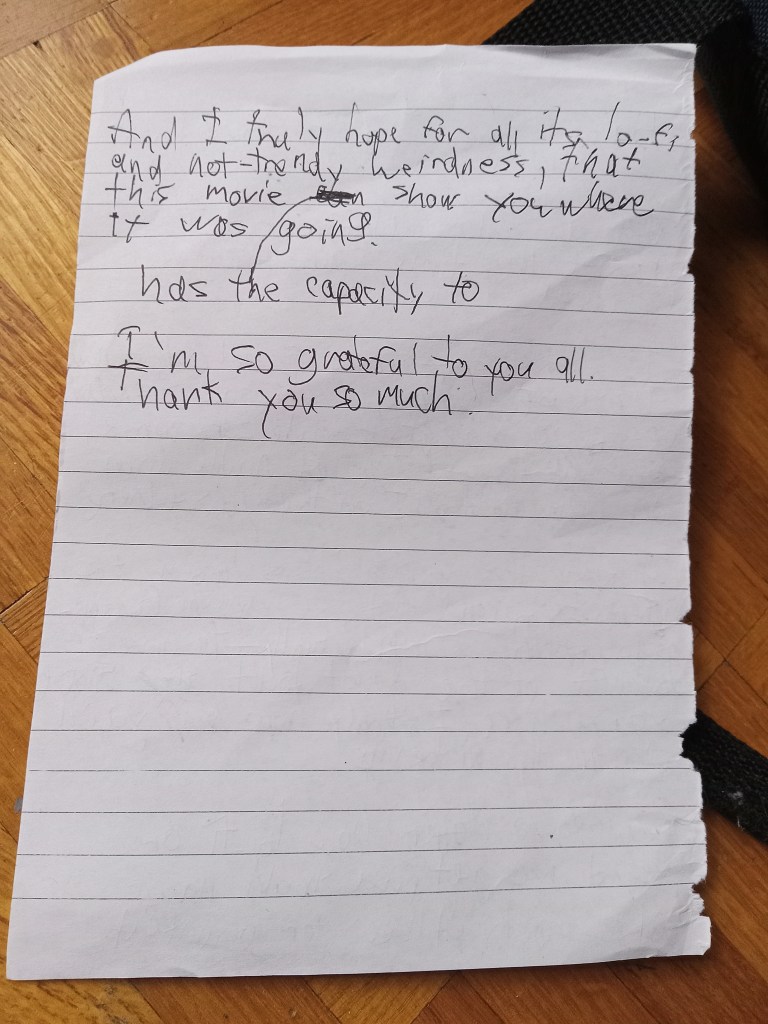 And I truly hope for all its lo-fi,
and not-trendy weirdness, that
this movie show you where
it was going.
has the capacity to
I'm so grateful to you all.
Thank you so much.